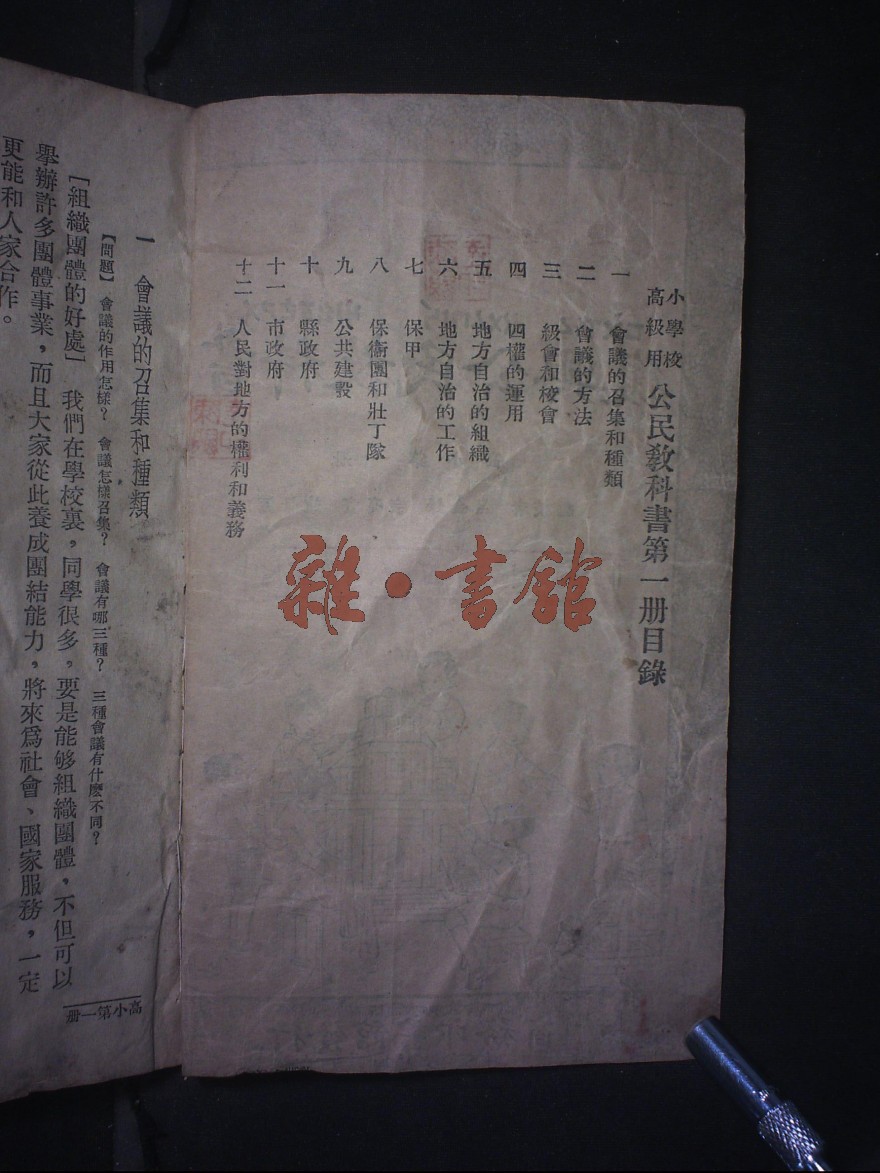 小學校高級用 公民教科書第一册目錄
一 會議的召集和種類
二 會議的方法
三 級會和校會
四 四權的運用
五 地方自治的組織
六 地方自治的工作
七 保甲
八 保衞團和壯丁隊
九 公共建設
十 縣政府
十一 市政府
十二 人民對地方的權利和義務
雜·書館
高小第一册
一 會議的召集和種類
【問題】 會議的作用怎樣？ 會議怎樣召集？ 會議有哪三種？ 三種會議有什麽不同？
［組織團體的好處］ 我們在學校裏，同學很多，要是能够組織團體，不但可以
舉辦許多團體事業，而且大家從此養成團結能力，將來爲社會、國家服務，一定
更能和人家合作。